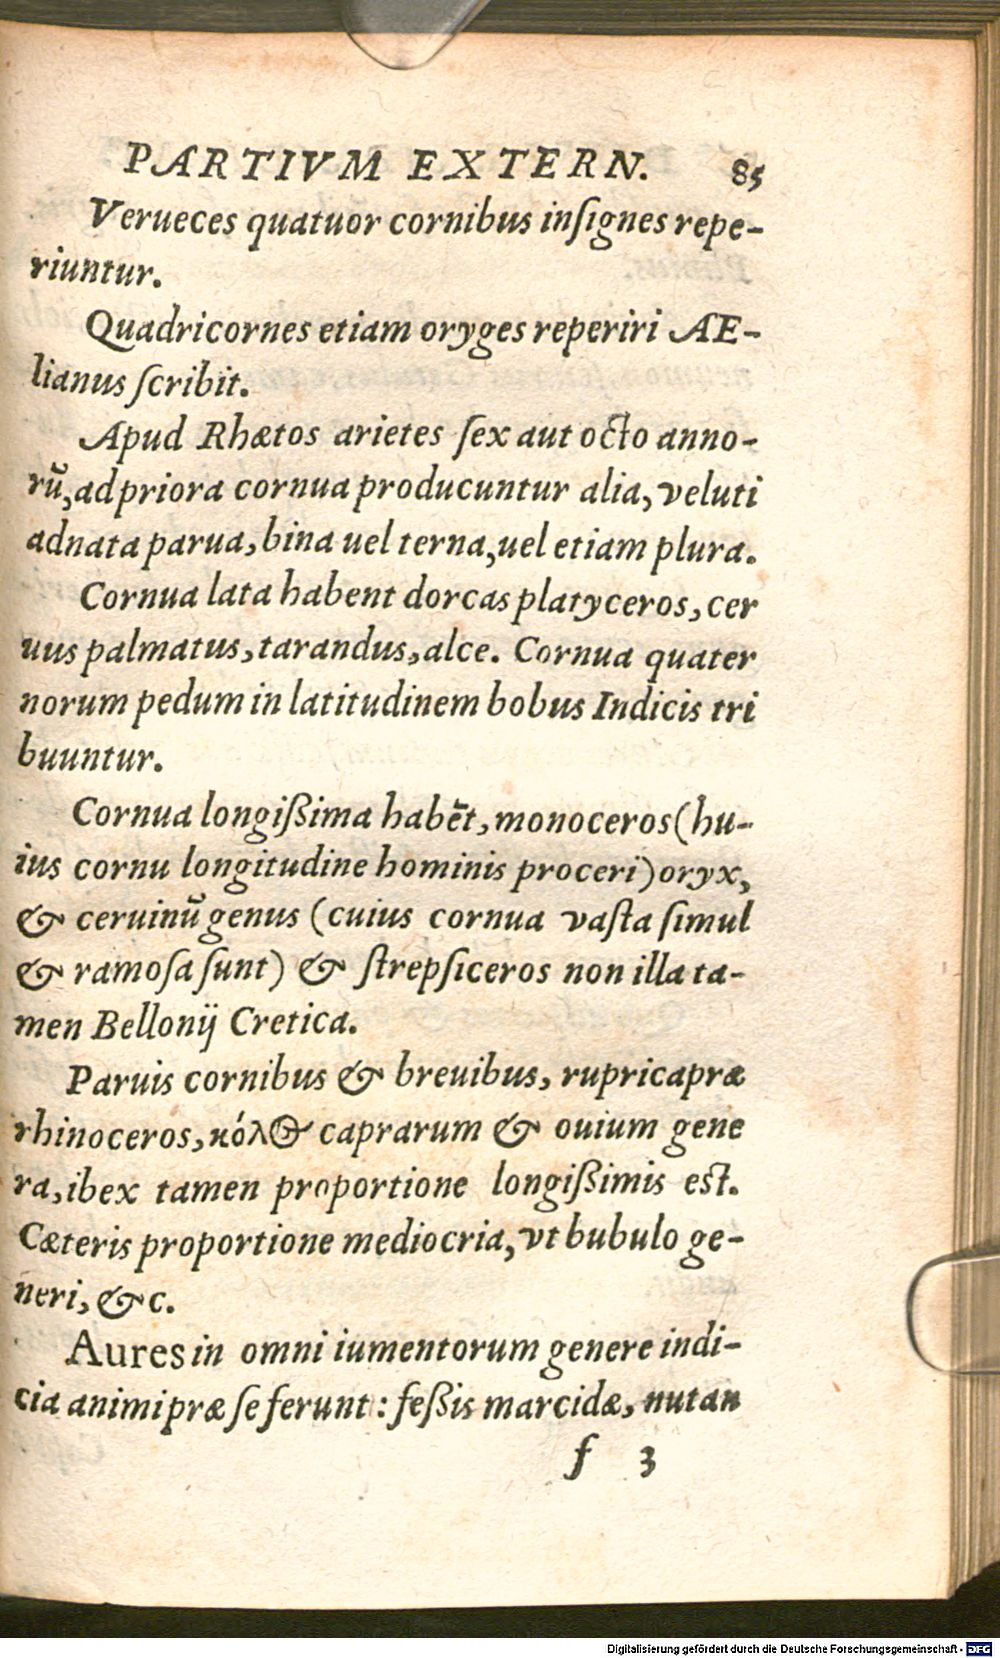 PARTIVM EXTERN. 85
Verueces quatuor cornibus inſignes repe-
riuntur.
Quadricornes etiam oryges reperiri AE-
lianus ſcribit.
Apud Rhætos arietes ſex aut octo anno-
rū, ad priora cornua producuntur alia, veluti
adnata parua, bina uel terna, uel etiam plura.
Cornua lata habent dorcas platyceros, cer
uus palmatus, tarandus, alce. Cornua quater
norum pedum in latitudinem bobus Indicis tri
buuntur.
Cornua longißima habēt, monoceros (hu-
ius cornu longitudine hominis proceri) oryx,
& ceruinū genus (cuius cornua vaſta ſimul
& ramoſa ſunt) & ſtrepſiceros non illa ta-
men Bellonij Cretica.
Paruis cornibus & breuibus, rupricapræ
rhinoceros, κόλΘ caprarum & ouium gene
ra, ibex tamen proportione longißimis est.
Cæteris proportione mediocria, vt bubulo ge-
neri, &c.
Aures in omni iumentorum genere indi-
cia animi præ ſe ferunt: feßis marcidæ, nutan
f 3
Digitalisierung gefördert durch die Deutsche Forschungsgemeinschaft - DFG